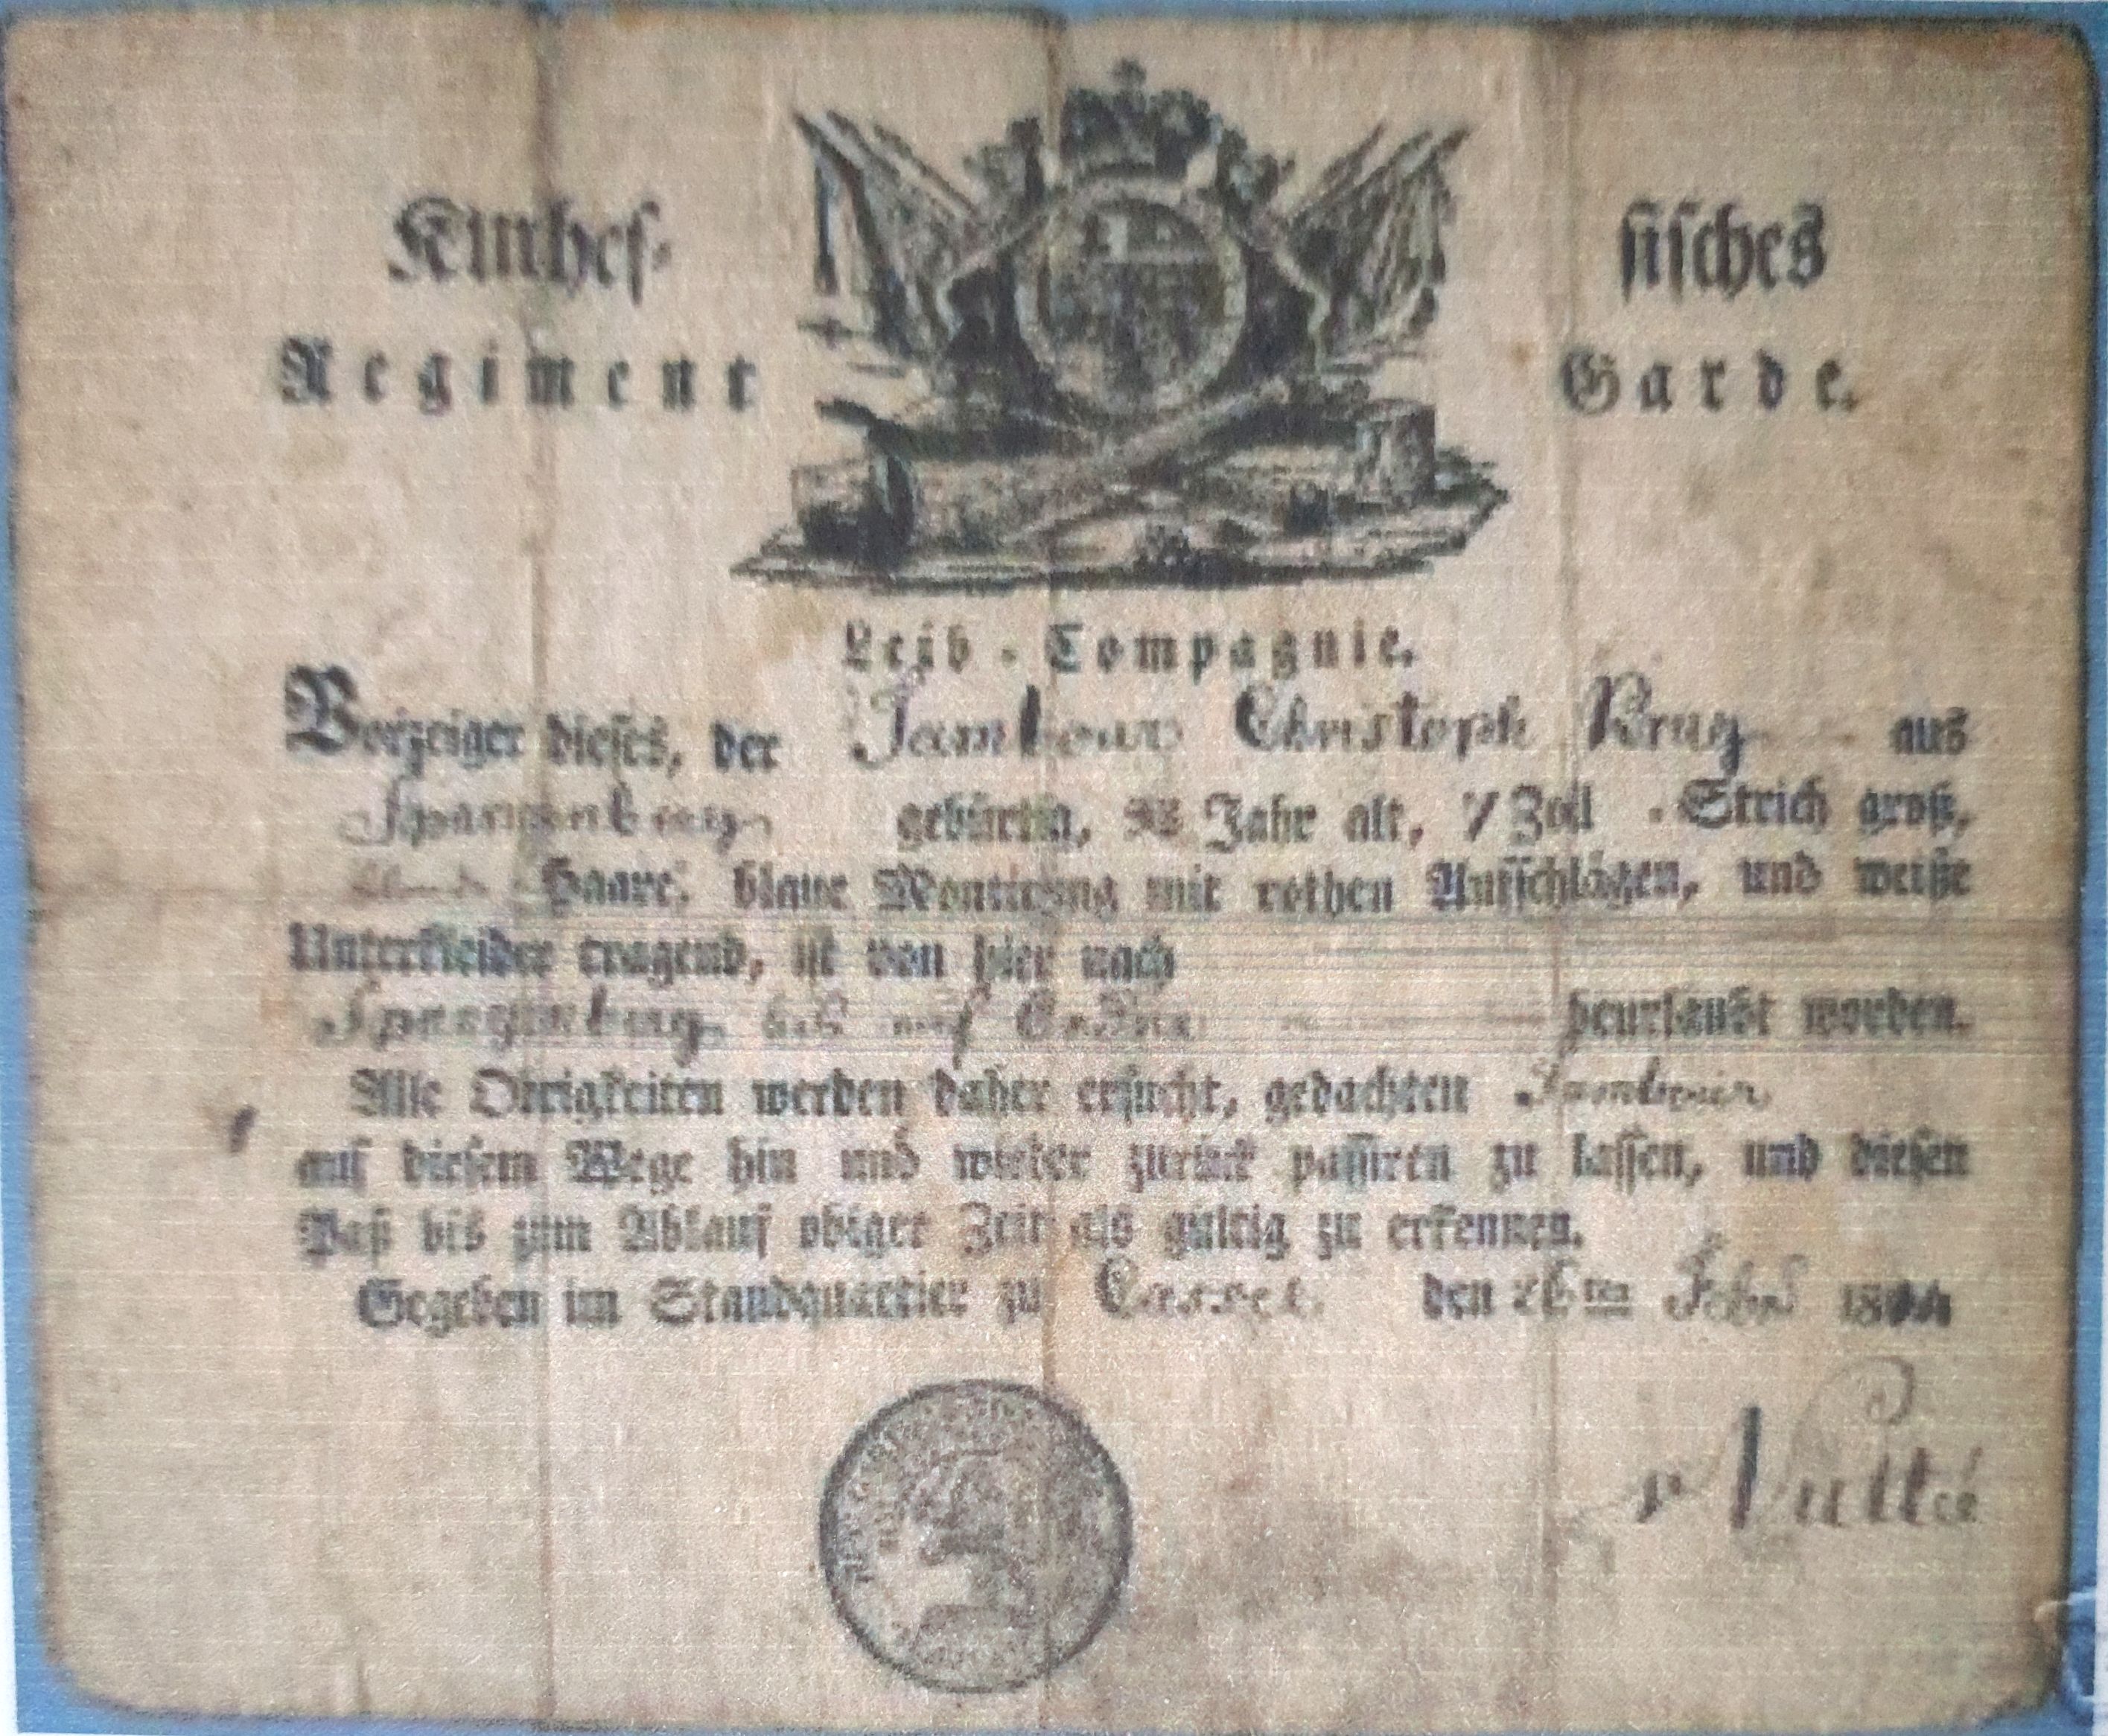 Kurhes- sisches
Regiment Garde.
Leib-Compagnie.
Vorzeiger dieses, der Tambour Christoph Krug aus
Spangenberg gebürtig, Jahr alt, 7 Zoll - Strich groß,
Haare, blaue Montirung mit rothen Aufschlägen, und weiße
Unterkleider tragend, ist von hier nach
Spangenberg bis auf beurlaubt worden.
Alle Obrigkeiten werden daher ersucht, gedachten Tambour
auf diesem Wege hin und wieder zurück passiren zu lassen, und diesen
Paß bis zum Ablauf obiger Zeit als gültig zu erkennen.
Gegeben im Standquartier zu Cassel. den 26ten